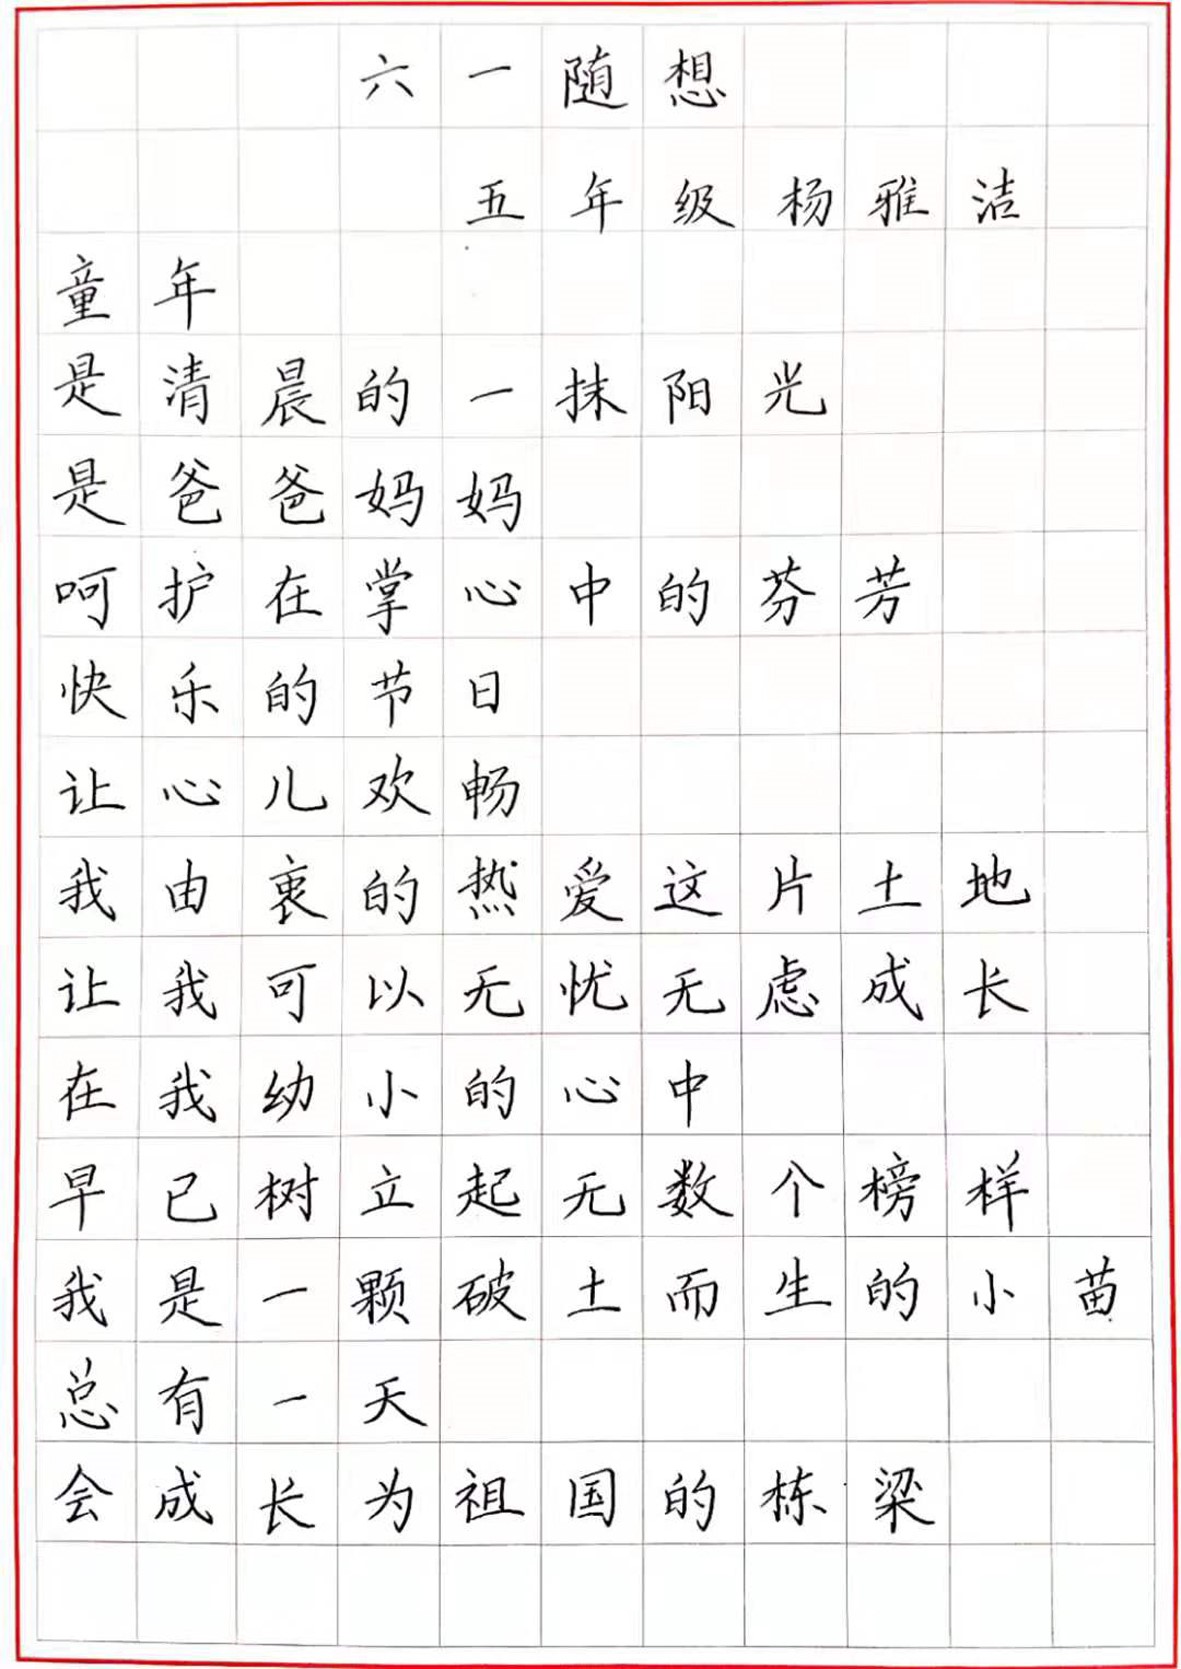 六一随想
五年级杨雅洁
童年
是清晨的一抹阳光
是爸爸妈妈
呵护在掌心中的芬芳
快乐的节日
让心儿欢畅
我由衷的热爱这片土地
让我可以无忧无虑成长
在我幼小的心中
早已树立起无数个榜样
我是一颗破土而生的小苗
总有一天
会成长为祖国的栋梁